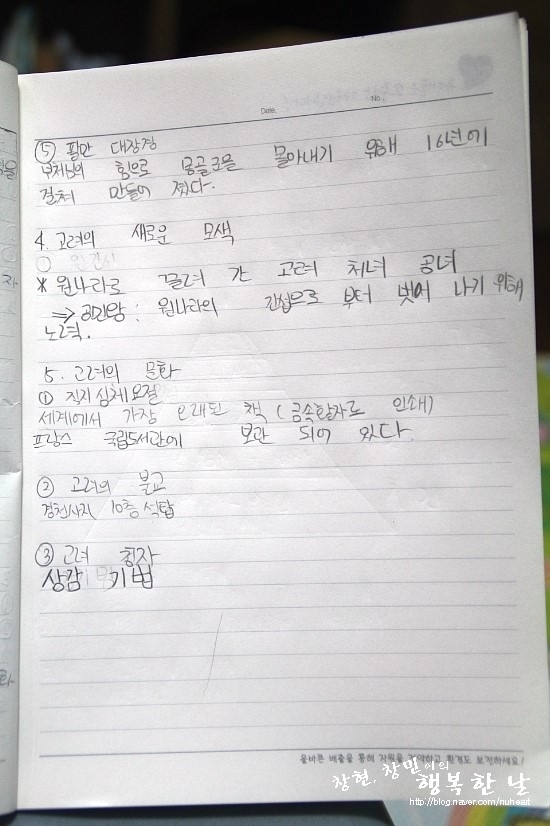 Date.
No.
⑤ 팔만 대장경
부처님의 힘으로 몽골군을 몰아내기 위해 16년에
걸쳐 만들어 졌다.
4. 고려의 새로운 모색
○ 원간시
* 원나라로 끌려 간 고려 처녀 공녀
⇒ 공민왕 : 원나라의 간섭으로 부터 벗어 나기 위해
노력.
5. 고려의 문화
① 직지심체요절
세계에서 가장 오래된 책 (금속활자로 인쇄)
프랑스 국립도서관에 보관 되어 있다.
② 고려의 불교
경천사지 10층 석탑
③ 고려 청자
상감 기법
올바른 배출을 통해 자원을 절약하고 환경도 보전하세요!
창현, 창민이의
행복한 날
http://blog.naver.com/nuheart